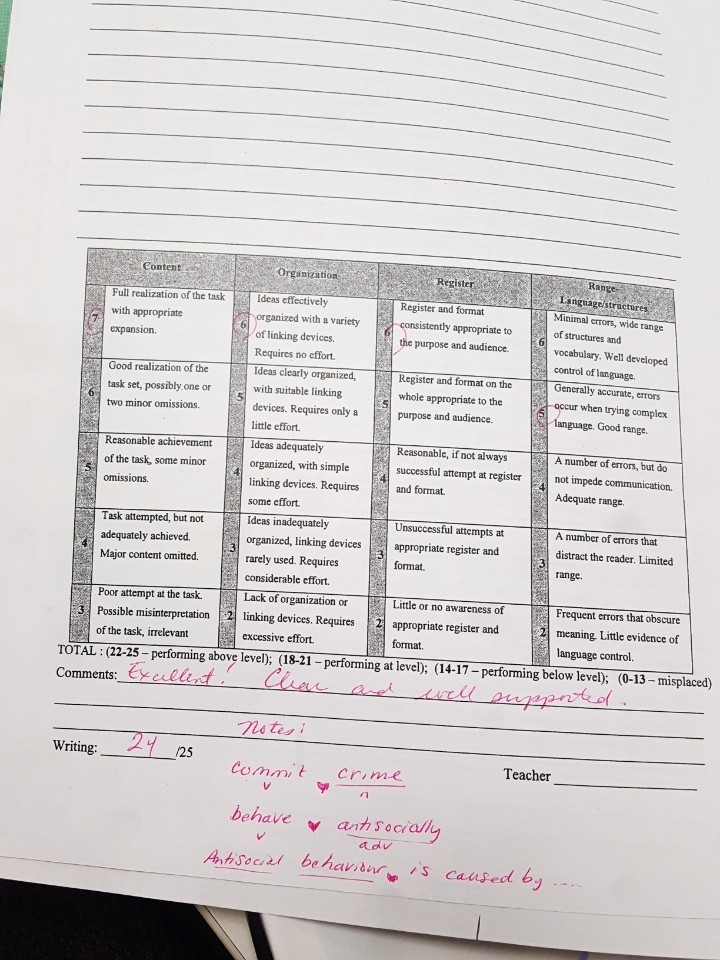 Content
Organization
Register
Range-
Language/structures
7
Full realization of the task
with appropriate
expansion.
6
Ideas effectively
organized with a variety
of linking devices.
Requires no effort.
6
Register and format
consistently appropriate to
the purpose and audience.
6
Minimal errors, wide range
of structures and
vocabulary. Well developed
control of language.
6
Good realization of the
task set, possibly one or
two minor omissions.
5
Ideas clearly organized,
with suitable linking
devices. Requires only a
little effort.
5
Register and format on the
whole appropriate to the
purpose and audience.
5
Generally accurate, errors
occur when trying complex
language. Good range.
5
Reasonable achievement
of the task, some minor
omissions.
4
Ideas adequately
organized, with simple
linking devices. Requires
some effort.
4
Reasonable, if not always
successful attempt at register
and format.
4
A number of errors, but do
not impede communication.
Adequate range.
4
Task attempted, but not
adequately achieved.
Major content omitted.
3
Ideas inadequately
organized, linking devices
rarely used. Requires
considerable effort.
3
Unsuccessful attempts at
appropriate register and
format.
3
A number of errors that
distract the reader. Limited
range.
3
Poor attempt at the task.
Possible misinterpretation
of the task, irrelevant
2
Lack of organization or
linking devices. Requires
excessive effort.
2
Little or no awareness of
appropriate register and
format.
2
Frequent errors that obscure
meaning. Little evidence of
language control.
TOTAL : (22-25 – performing above level); (18-21 – performing at level); (14-17 – performing below level); (0-13 – misplaced)
Comments: Excellent! Clear and well supported.
Notes:
Writing: 24 /25
Teacher
commit ♥ crime
v n
behave ♥ antisocially
v adv
Antisocial behaviour is caused by ....